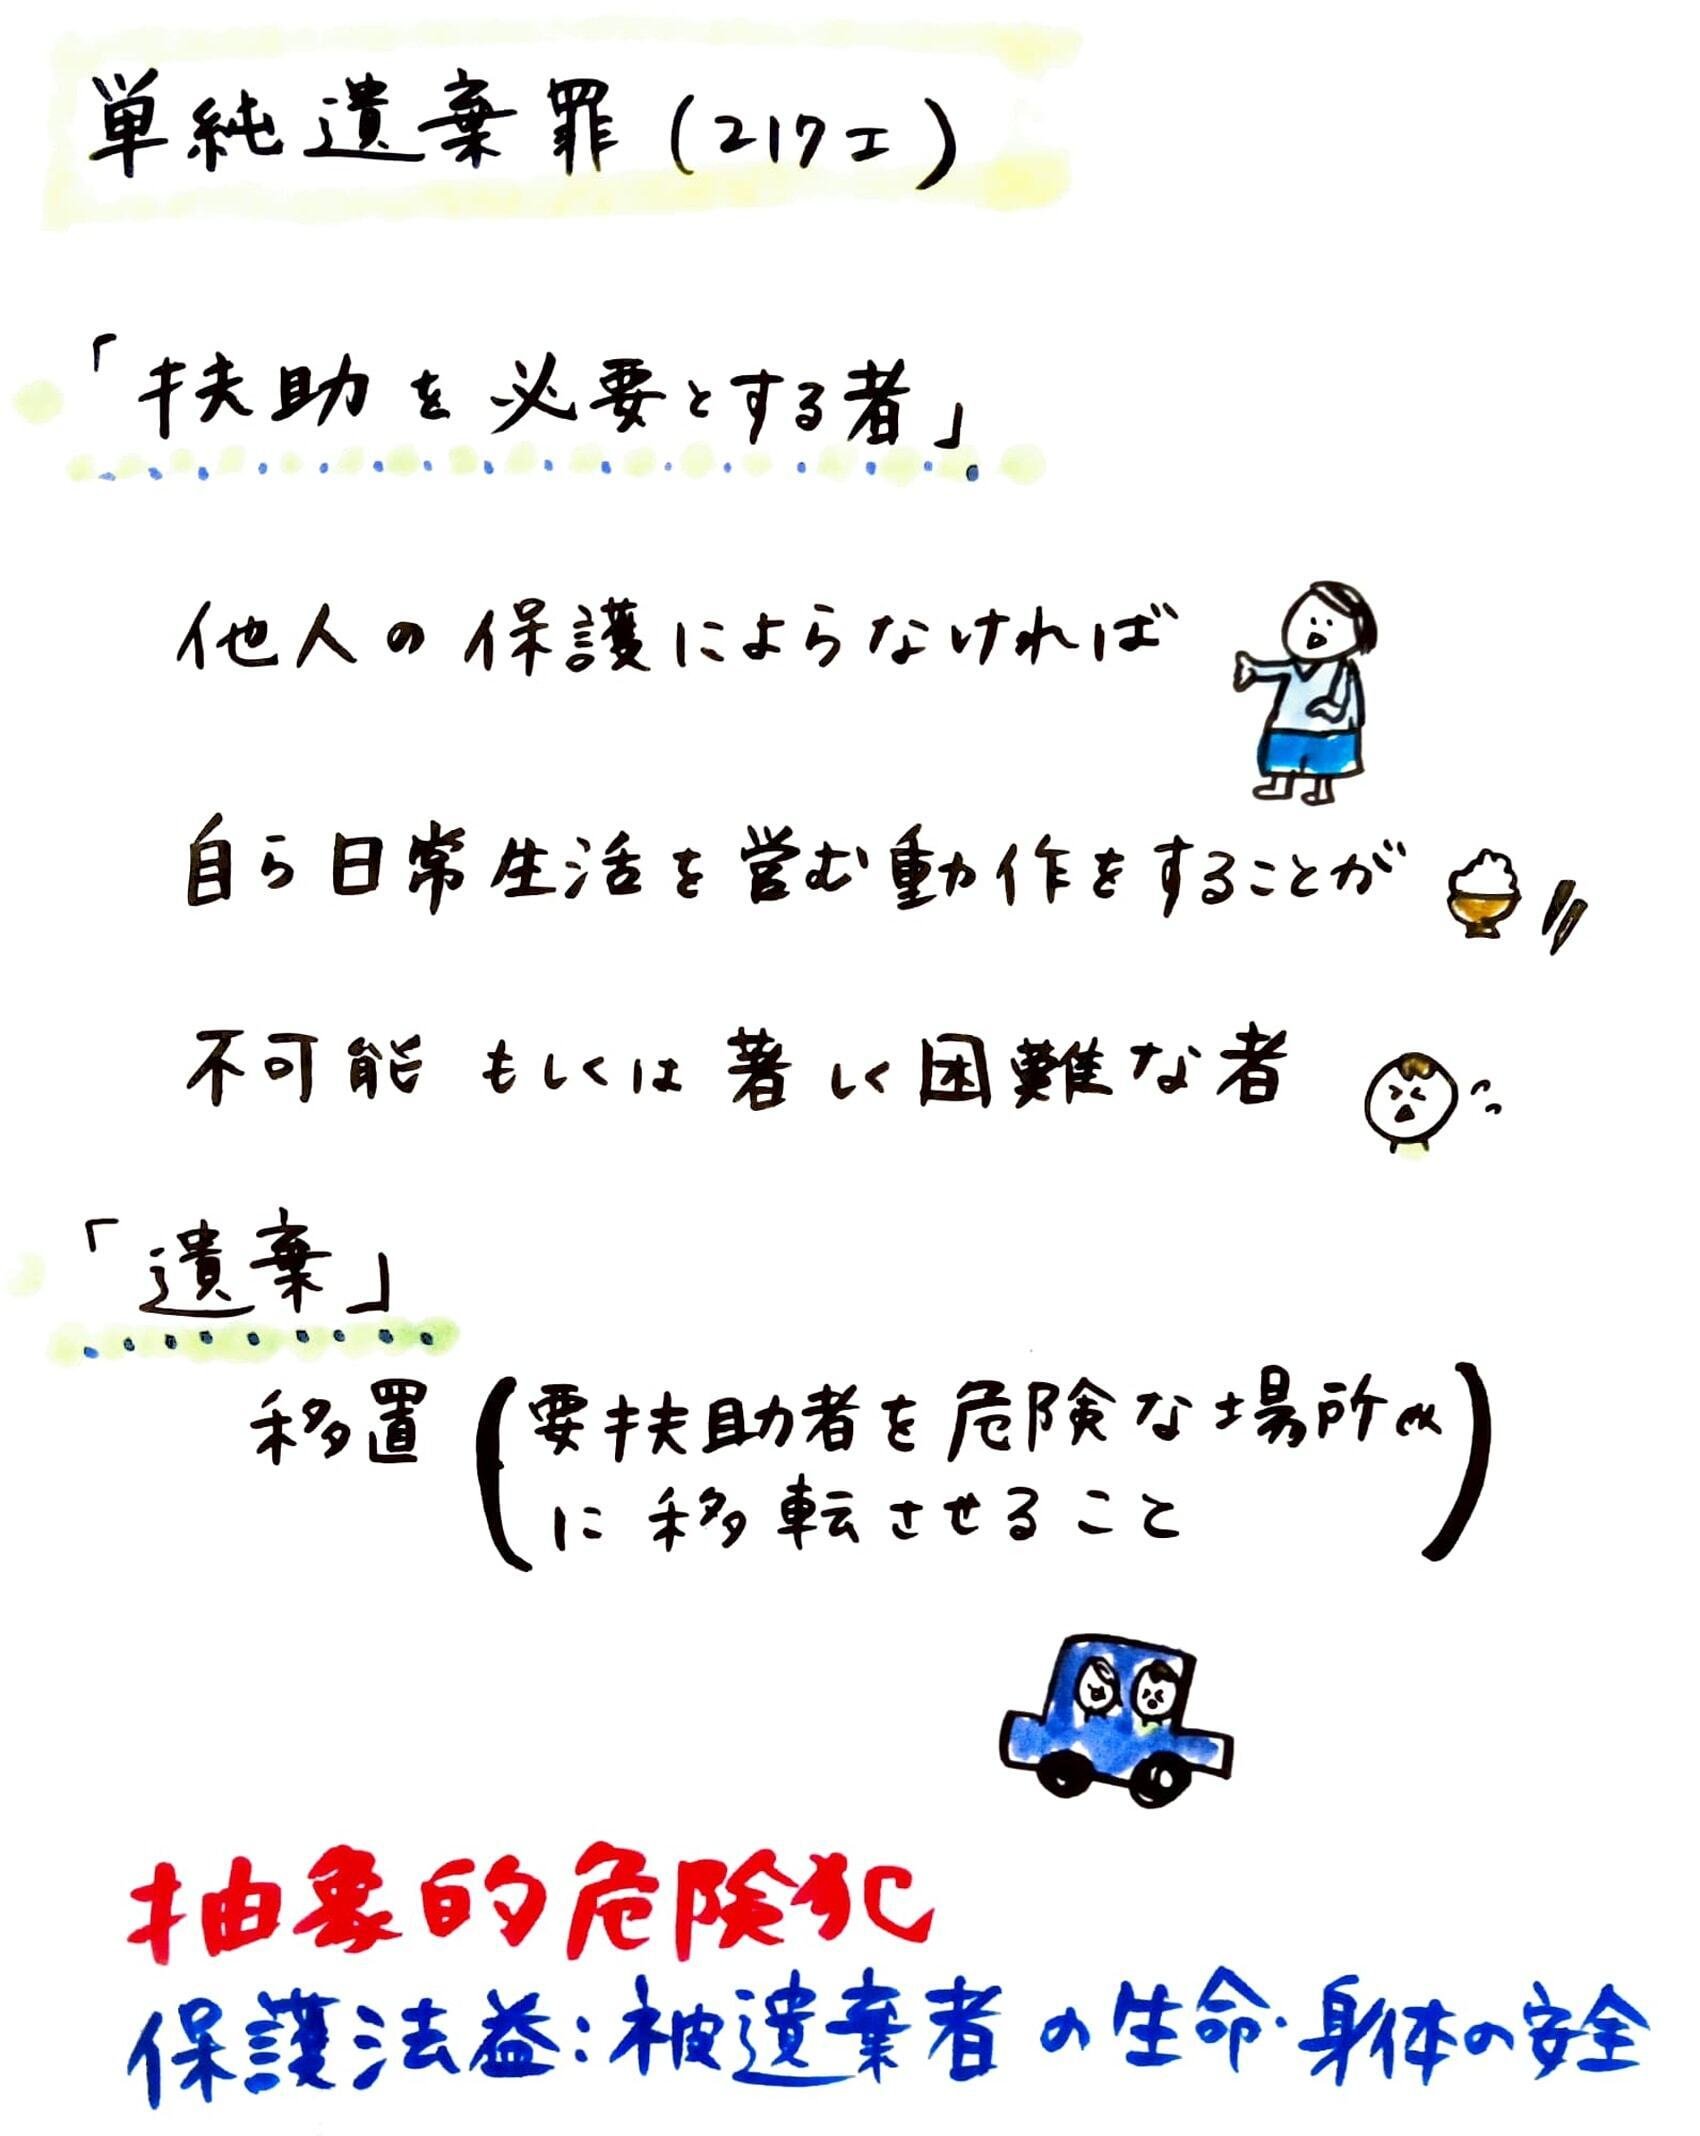 単純遺棄罪(217エ)
「扶助を必要とする者」
他人の保護によらなければ
自ら日常生活を営む動作をすることが
不可能もしくは著しく困難な者
「遺棄」
移置(要扶助者を危険な場所
に移転させること)
抽象的危険犯
保護法益:被遺棄者の生命・身体の安全